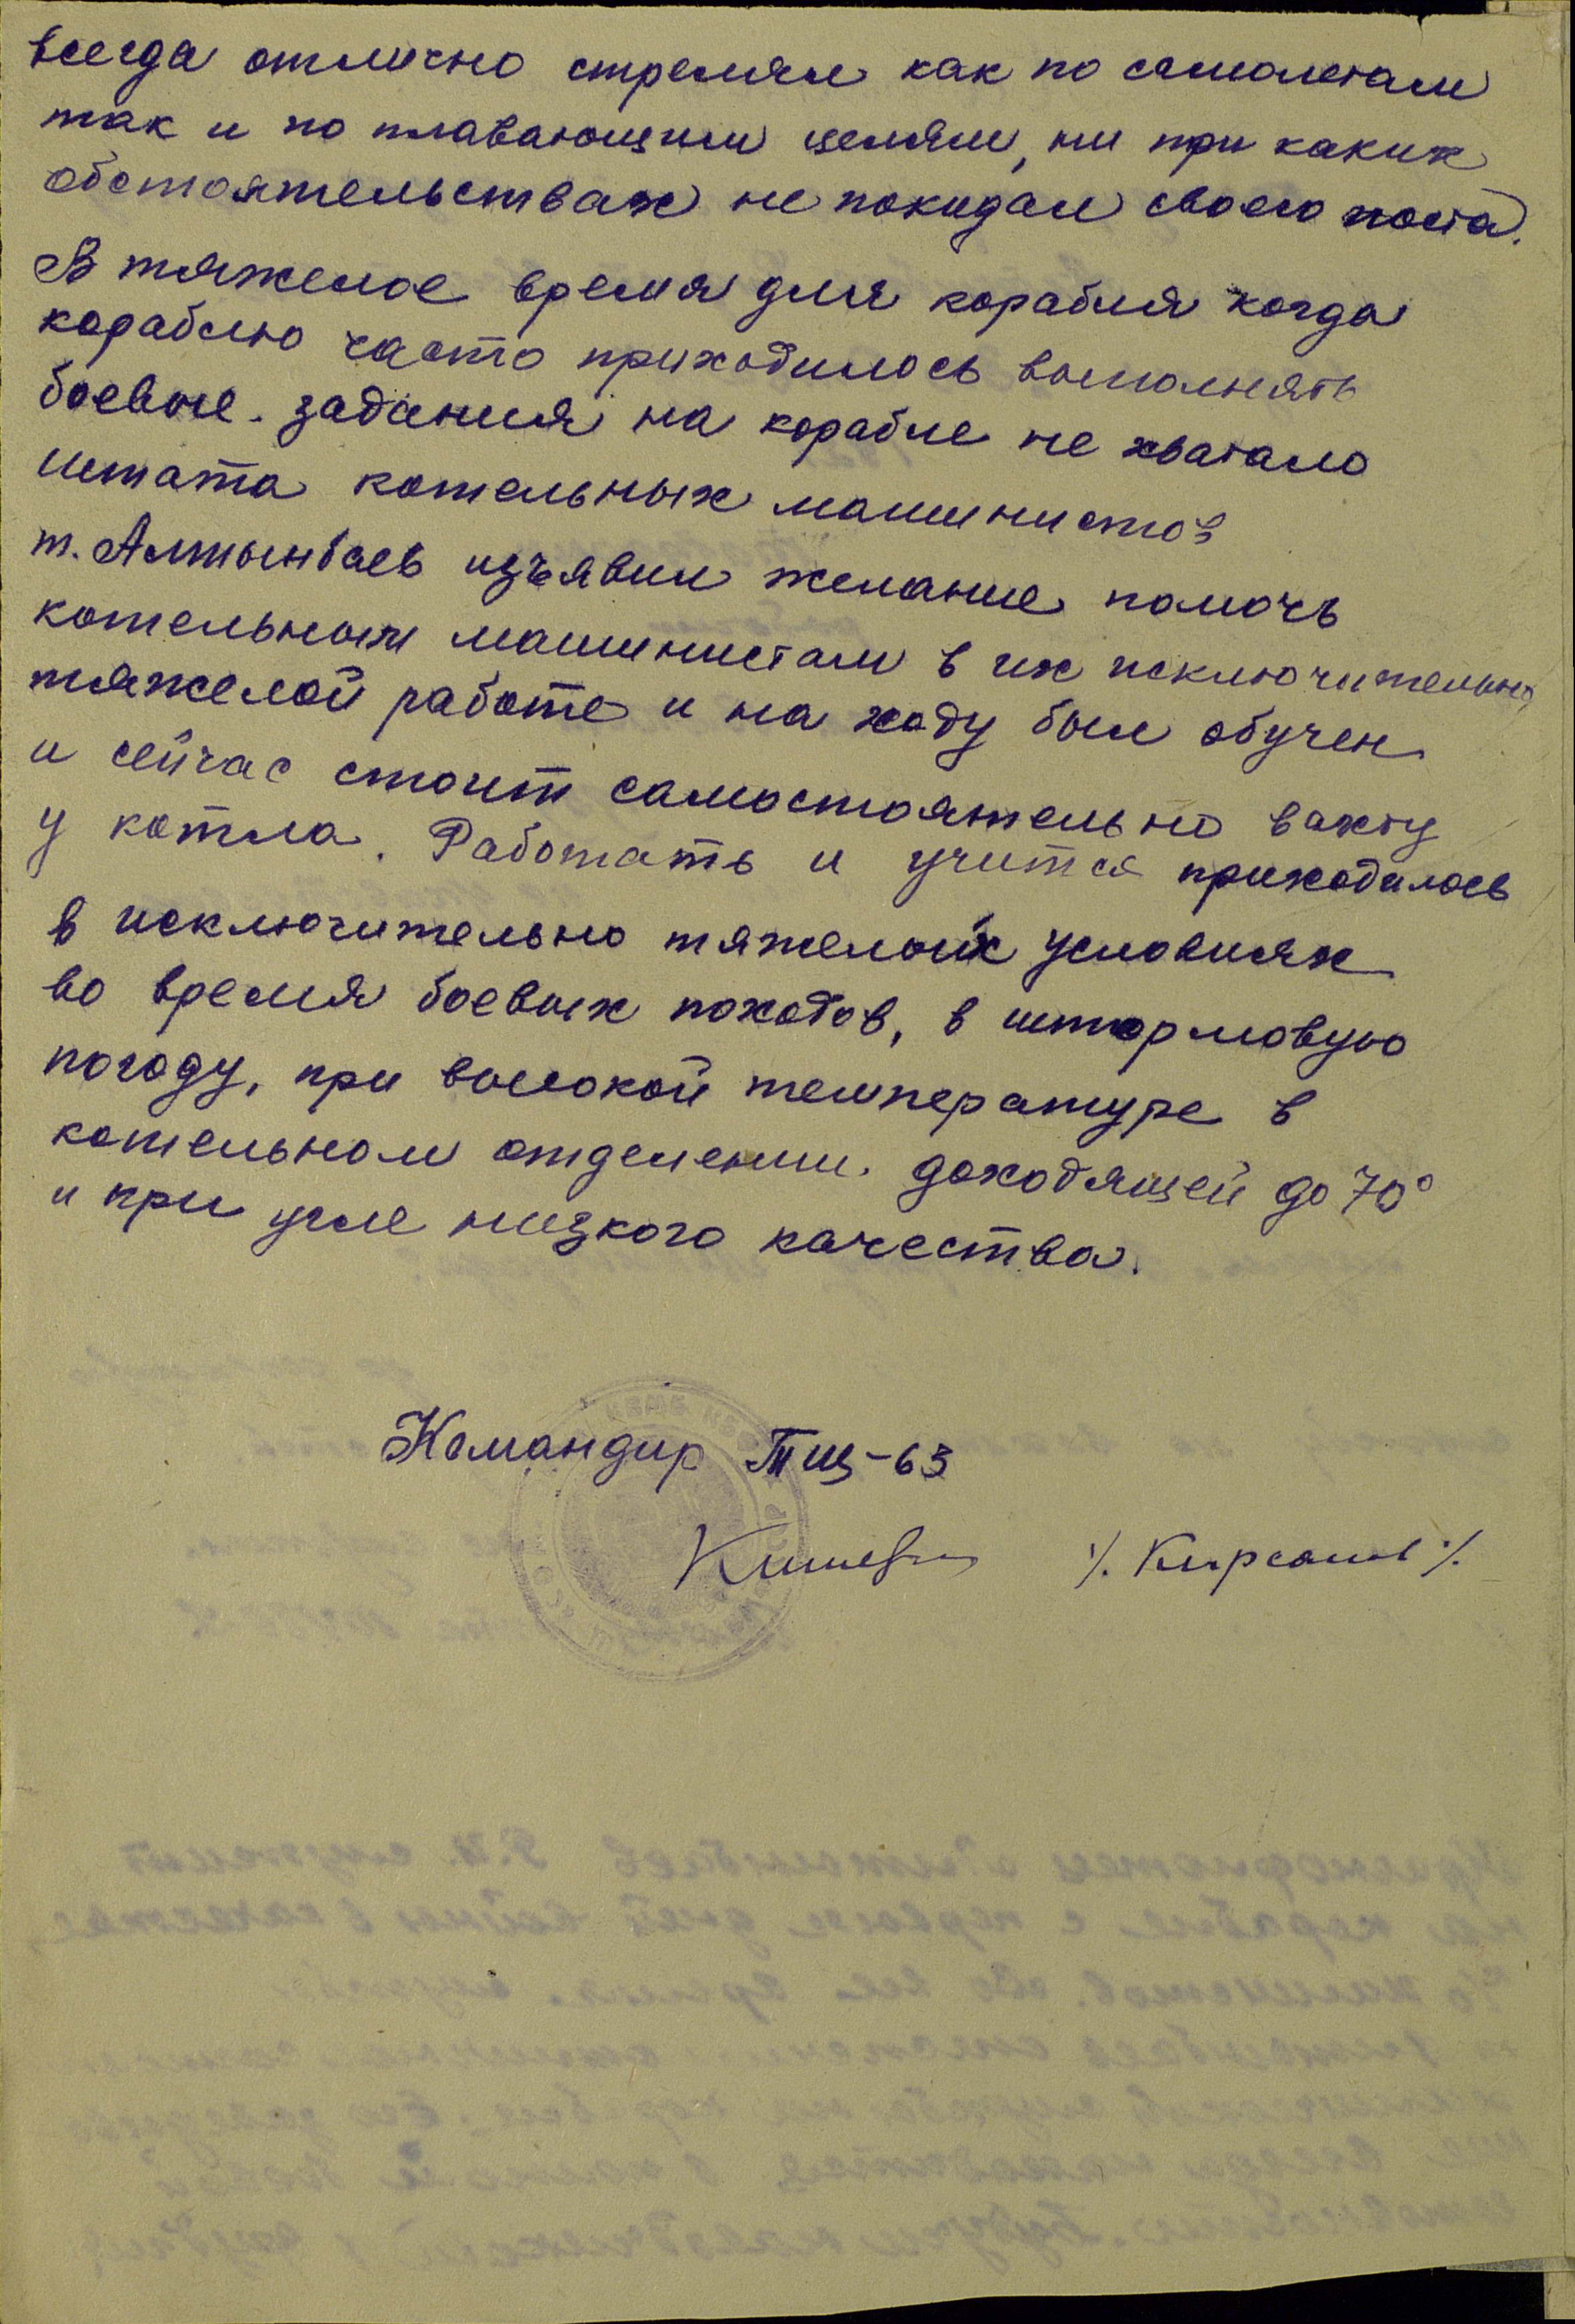 всегда отлично стрелял как по самолетам
так и по плавающим целям, ни при каких
обстоятельствах не покидал своего поста.
В тяжелое время для корабля когда
кораблю часто приходилось выполнять
боевые задания на корабле не хватало
штата котельных машинистов
т. Алтынбаев изъявил желание помочь
котельным машинистам в их исключительно
тяжелой работе и на ходу был обучен
и сейчас стоит самостоятельно вахту
у котла. Работать и учится приходилось
в исключительно тяжелых условиях
во время боевых походов, в штормовую
погоду, при высокой температуре в
котельном отделении доходящей до 70°
и при угле низкого качества.
Командир Тщ-63
/. Кирсанов /.